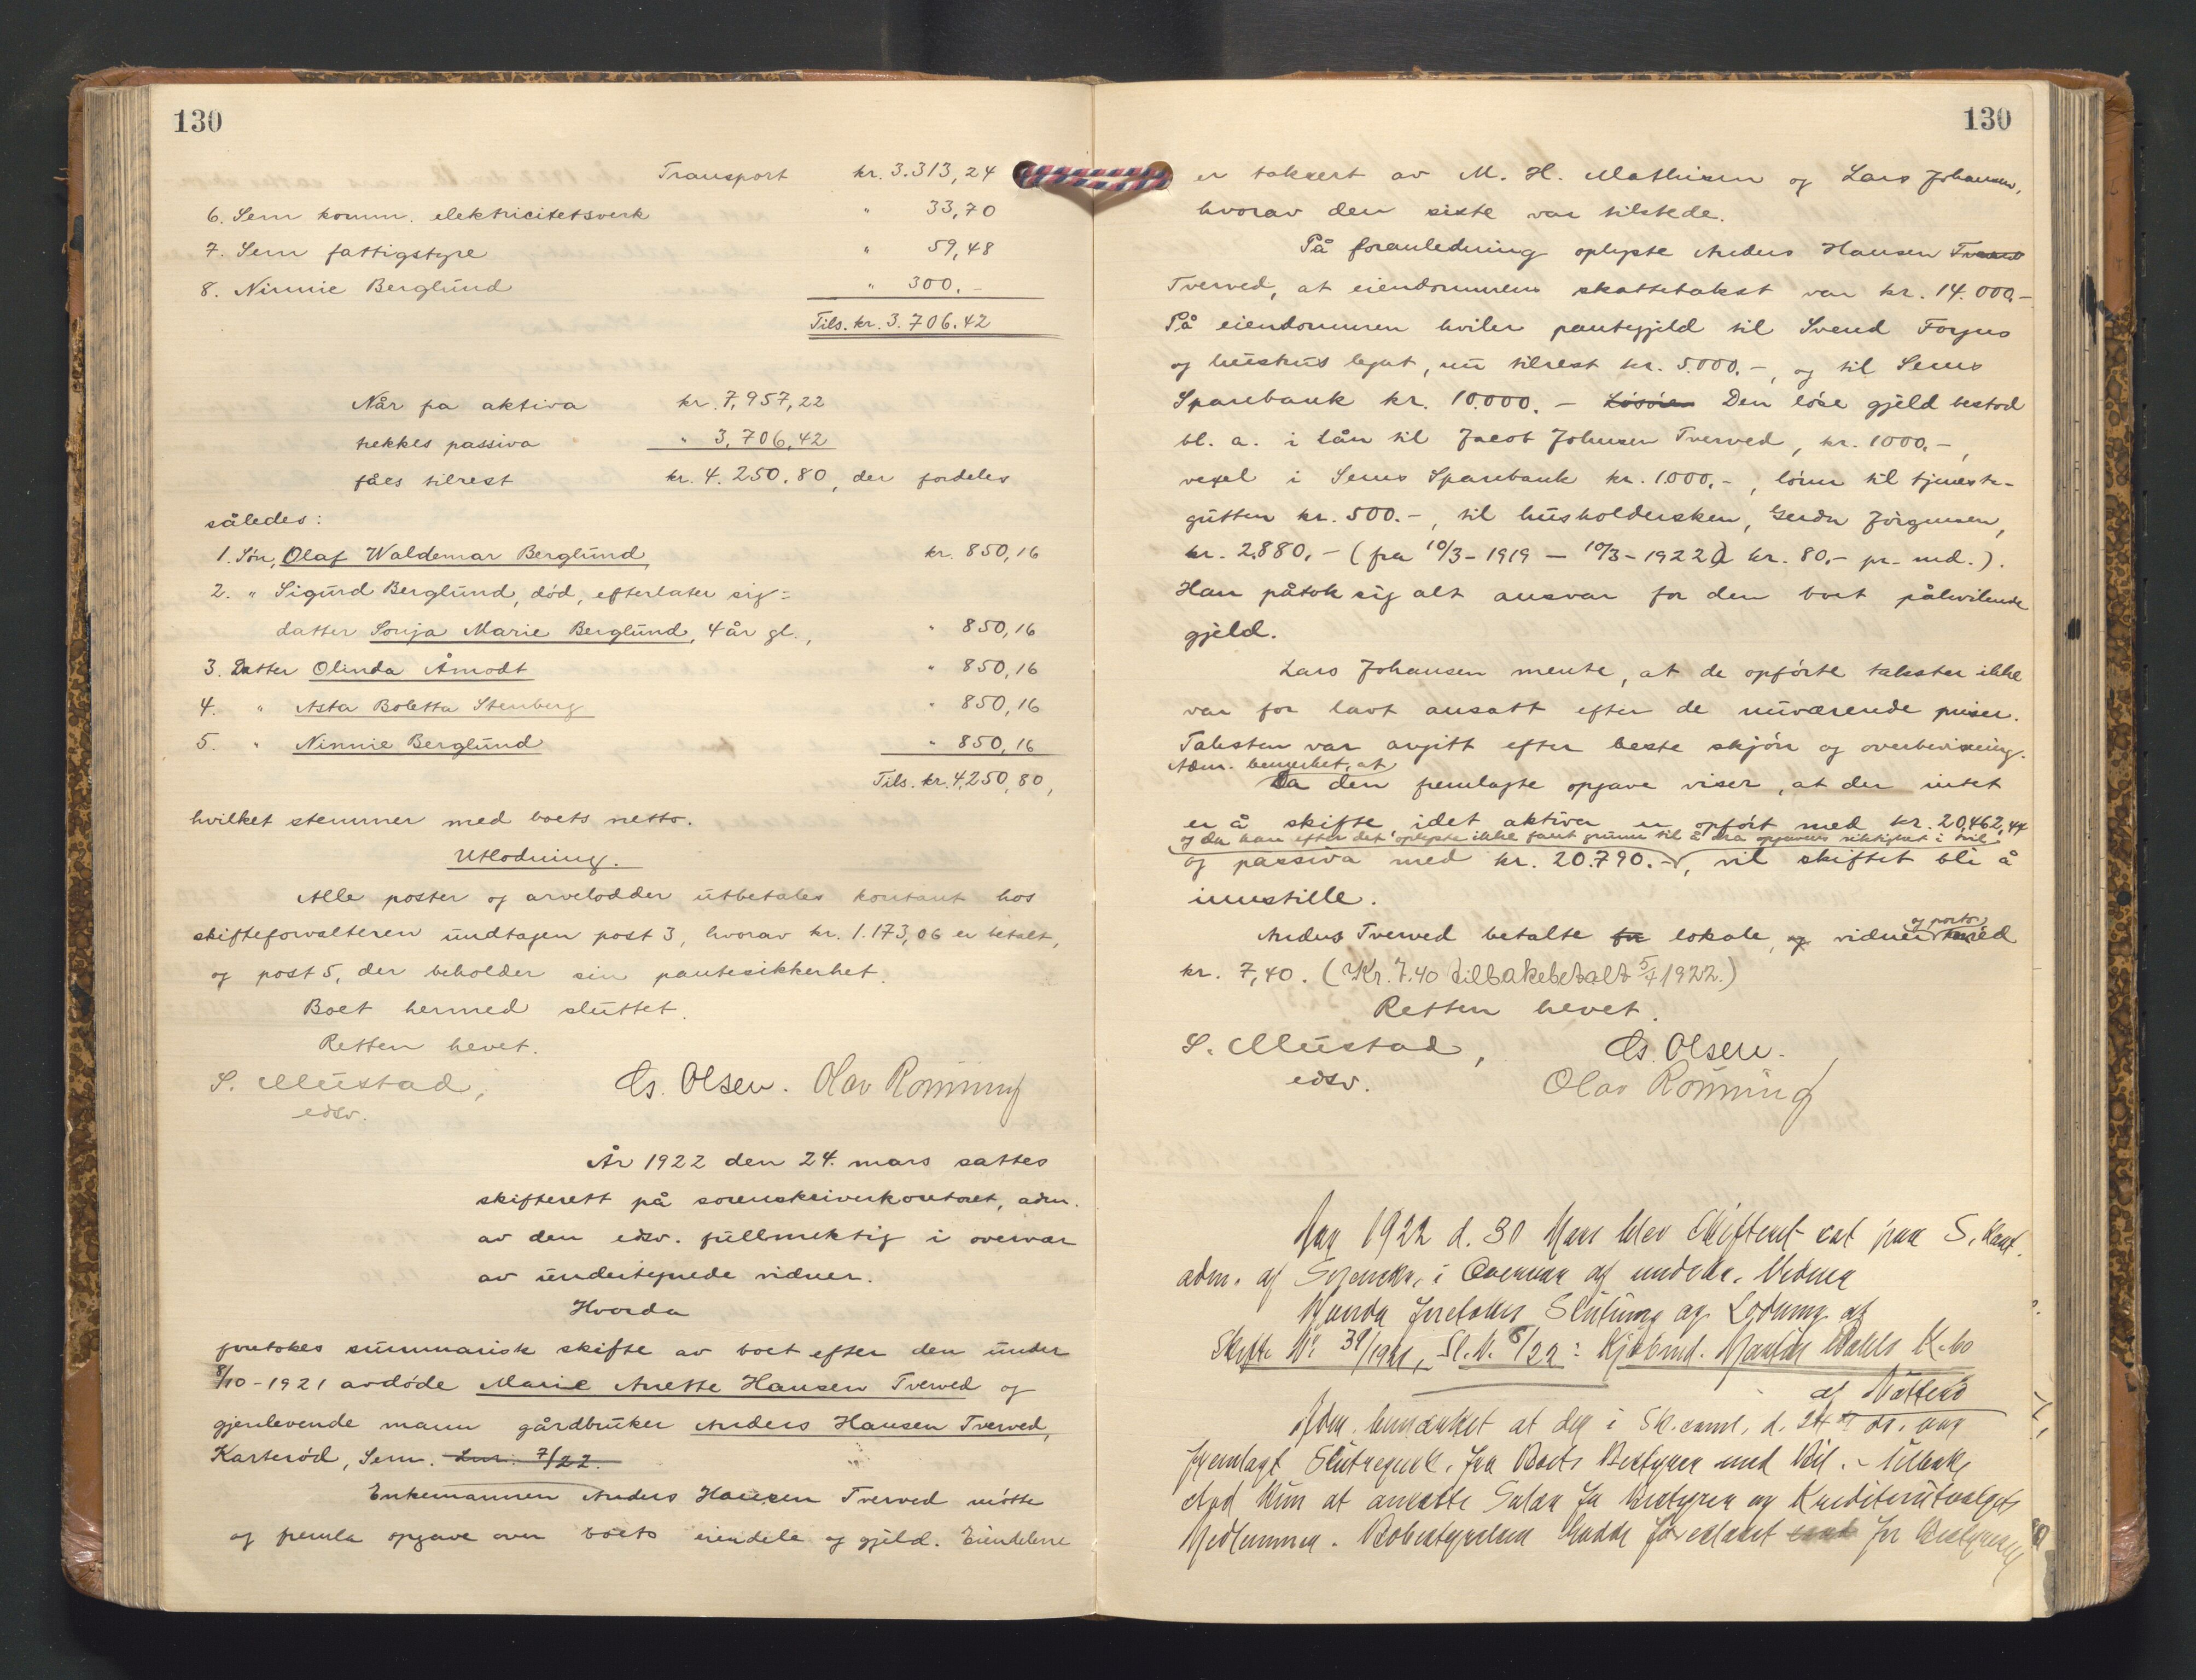 130
Transport kr. 3.313,24
6. Sem komm. elektricitetsverk " 33,70
7. Sem fattigstyre " 59,48
8. Ninnie Berglund " 300.-
Tils. kr. 3.706.42
Når fra aktiva kr. 7,957,22
trekkes passiva " 3,706,42
fåes tilrest kr. 4.250.80, der fordeles
således:
1. Søn, Olaf Waldemar Berglund, kr. 850,16
2. " Sigurd Berglund, død, efterlater sig:
datter Sonja Marie Berglund, 4 år gl., " 850,16
3. Datter Olinda Åmodt " 850,16
4. " Asta Boletta Stenberg " 850,16
5. " Ninnie Berglund " 850,16
Tils. kr. 4,250,80,
hvilket stemmer med boets netto.
Utlodning.
Alle poster og arvelodder utbetales kontant hos
skifteforvalteren undtagen post 3, hvorav kr. 1.173,06 er betalt,
og post 5, der beholder sin pantesikkerhet.
Boet hermed sluttet.
Retten hevet.
S. Mustad, Cs. Olsen. Olav Rönning
edsv.
År 1922 den 24. mars sattes
skifterett på sorenskriverkontoret, adm.
av den edsv. fullmektig i overvær
av undertegnede vidner.
Hvorda
foretokes summarisk skifte av boet efter den under
8/10-1921 avdøde Marie Anette Hansen Tverved og
gjenlevende mann gårdbruker Anders Hansen Tverved,
Karterød, Sem. 7/22.
Enkemannen Anders Hansen Tverved møtte
og fremla opgave over boets eiendele og gjeld. Eiendelene
130
er taksert av M. H. Mathisen og Lars Johansen,
hvorav den siste var tilstede.
På foranledning oplyste Anders Hansen
Tverved, at eiendommens skattetakst var kr. 14.000,-
På eiendommen hviler pantegjeld til Svend Foyns
og hustrus legat, nu tilrest kr. 5.000.-, og til Sems
Sparebank kr. 10.000.- Løsøre Den løse gjeld bestod
bl. a. i lån til Jacob Johnsen Tverved, kr. 1000,-,
vexel i Sems Sparebank kr. 1.000.-, lønn til tjeneste-
gutten kr. 500.-, til husholdersken, Gerda Jörgensen,
kr. 2.880.- (fra 10/3-1919 — 10/3-1922 à kr. 80,- pr. md.).
Han påtok sig alt ansvar for den boet påhvilende
gjeld.
Lars Johansen mente, at de opførte takster ikke
var for lavt ansatt efter de nuværende priser.
Taksten var avgitt efter beste skjøn og overbevisning.
Adm. bemerket, at
Da den fremlagte opgave viser, at der intet
er å skifte idet aktiva er opført med kr. 20,462,44
og da han efter det oplyste ikke fant grunn til å dra opgavens riktighet i tvil
og passiva med kr. 20.790.-, vil skiftet bli å
innstille.
og porto
Anders Tverved betalte for lokale, og vidner med
kr. 7,40. (Kr. 7.40 tilbakebetalt 5/4 1922.)
Retten hevet.
S. Mustad, Cs. Olsen.
edsv. Olav Rönning
Aar 1922 d. 30 Mars blev Skifteret sat paa S. Kont.
adm. af Sorenskr. i Overvær af undskr. Vidner
Hvorda foretokes Slutning og Lodning af
Skifte Nr. 34/1921, Sl. N. 6/22: Kjøbmd. Wahls K.bo
af Nötterö
Adm. bemærket at der i Sk. saml. d. 24 ds. var
fremlagt Slutregnsk. fra Boets Bestyrer med Bil. - Tilbake
stod kun at ansætte Salær for Bestyrer og Kreditorutvalgets
Medlemmer. Bobestyrelsen hadde foreslaaet for Bestyreren